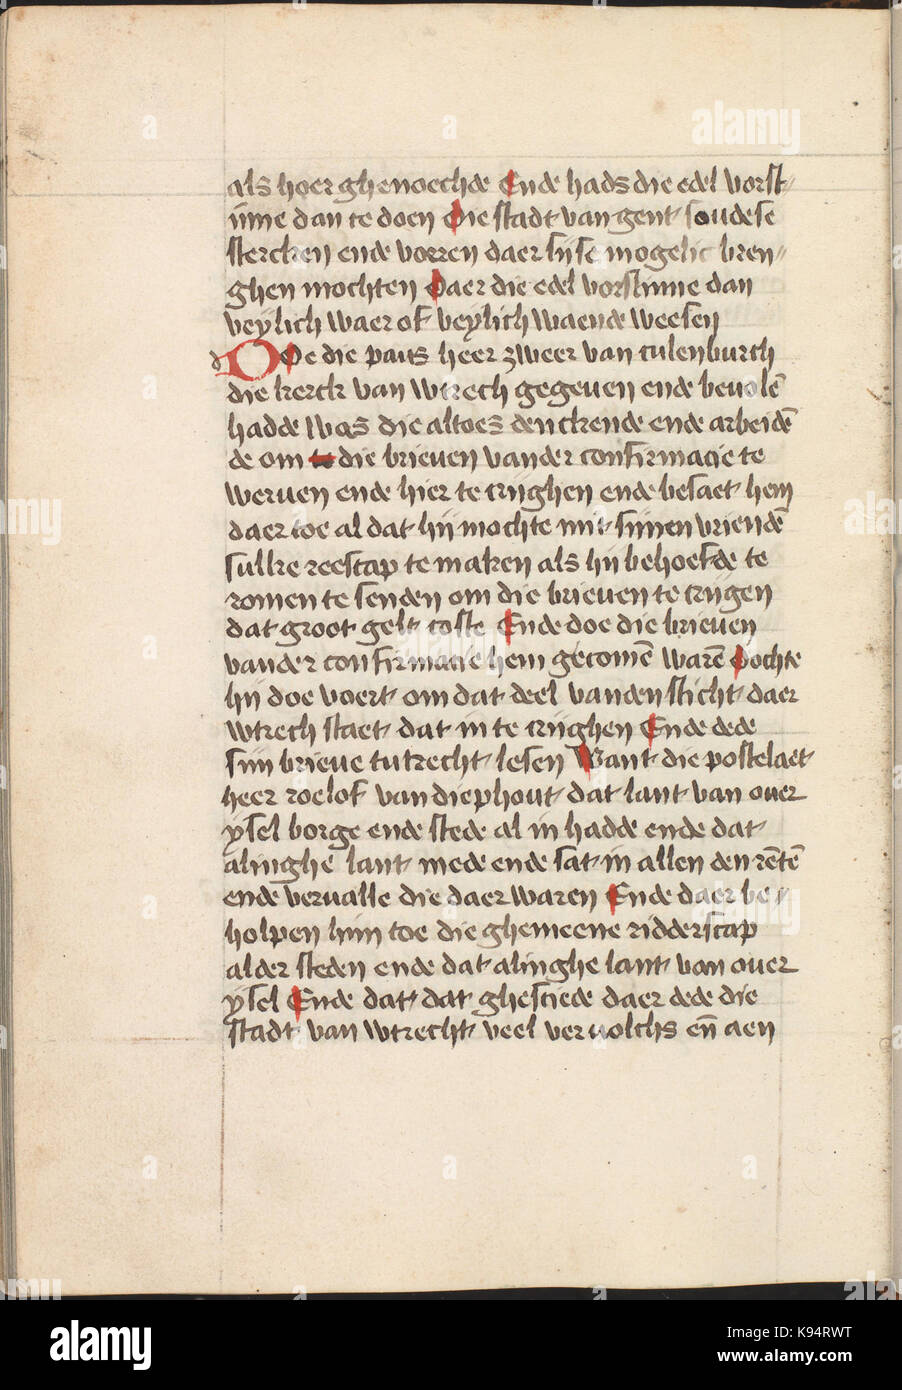 als hoer ghenoechde Ende hads die edel vorst-
inne dan te doen Die stadt van gent soudese
stercken ende vorren daer sijse mogelic bren〃
ghen mochten Daer die edel vorstinne dan
veylich waer of veylich waende weesen
d Doe die paus heer zweer van culenburch
die kerck van wtrech gegeven ende bevolē
hadde was die altoes denckende ende arbeidē
de om te die brieven vander confirmacie te
werven ende hier te crijghen ende besaet hem
daer toe al dat hij mochte mit sijnen vriendē
sulke reescap te maken als hij behoefde te
romen te senden om die brieven te crijgen
dat groot gelt coste Ende doe die brieven
vander confirmacie hem gecomē warē Dochte
hij doe voert om dat deel vanden sticht daer
wtrech staet dat in te crijghen Ende dede
sijn brieve tutrecht lesen Want die postelaet
heer roelof van diephout dat lant van over
ysel borge ende stede al in hadde ende dat
alinghe lant mede ende sat in allen den rētē
ende vervalle die daer waren Ende daer be〃
holpen him toe die ghemeene ridderscap
alder steden ende dat alinghe lant van over
ysel Ende dat dat ghesciede daer dede die
stadt van wtrecht veel vervolchs eñ aen
alamy
K94RWT
www.alamy.com